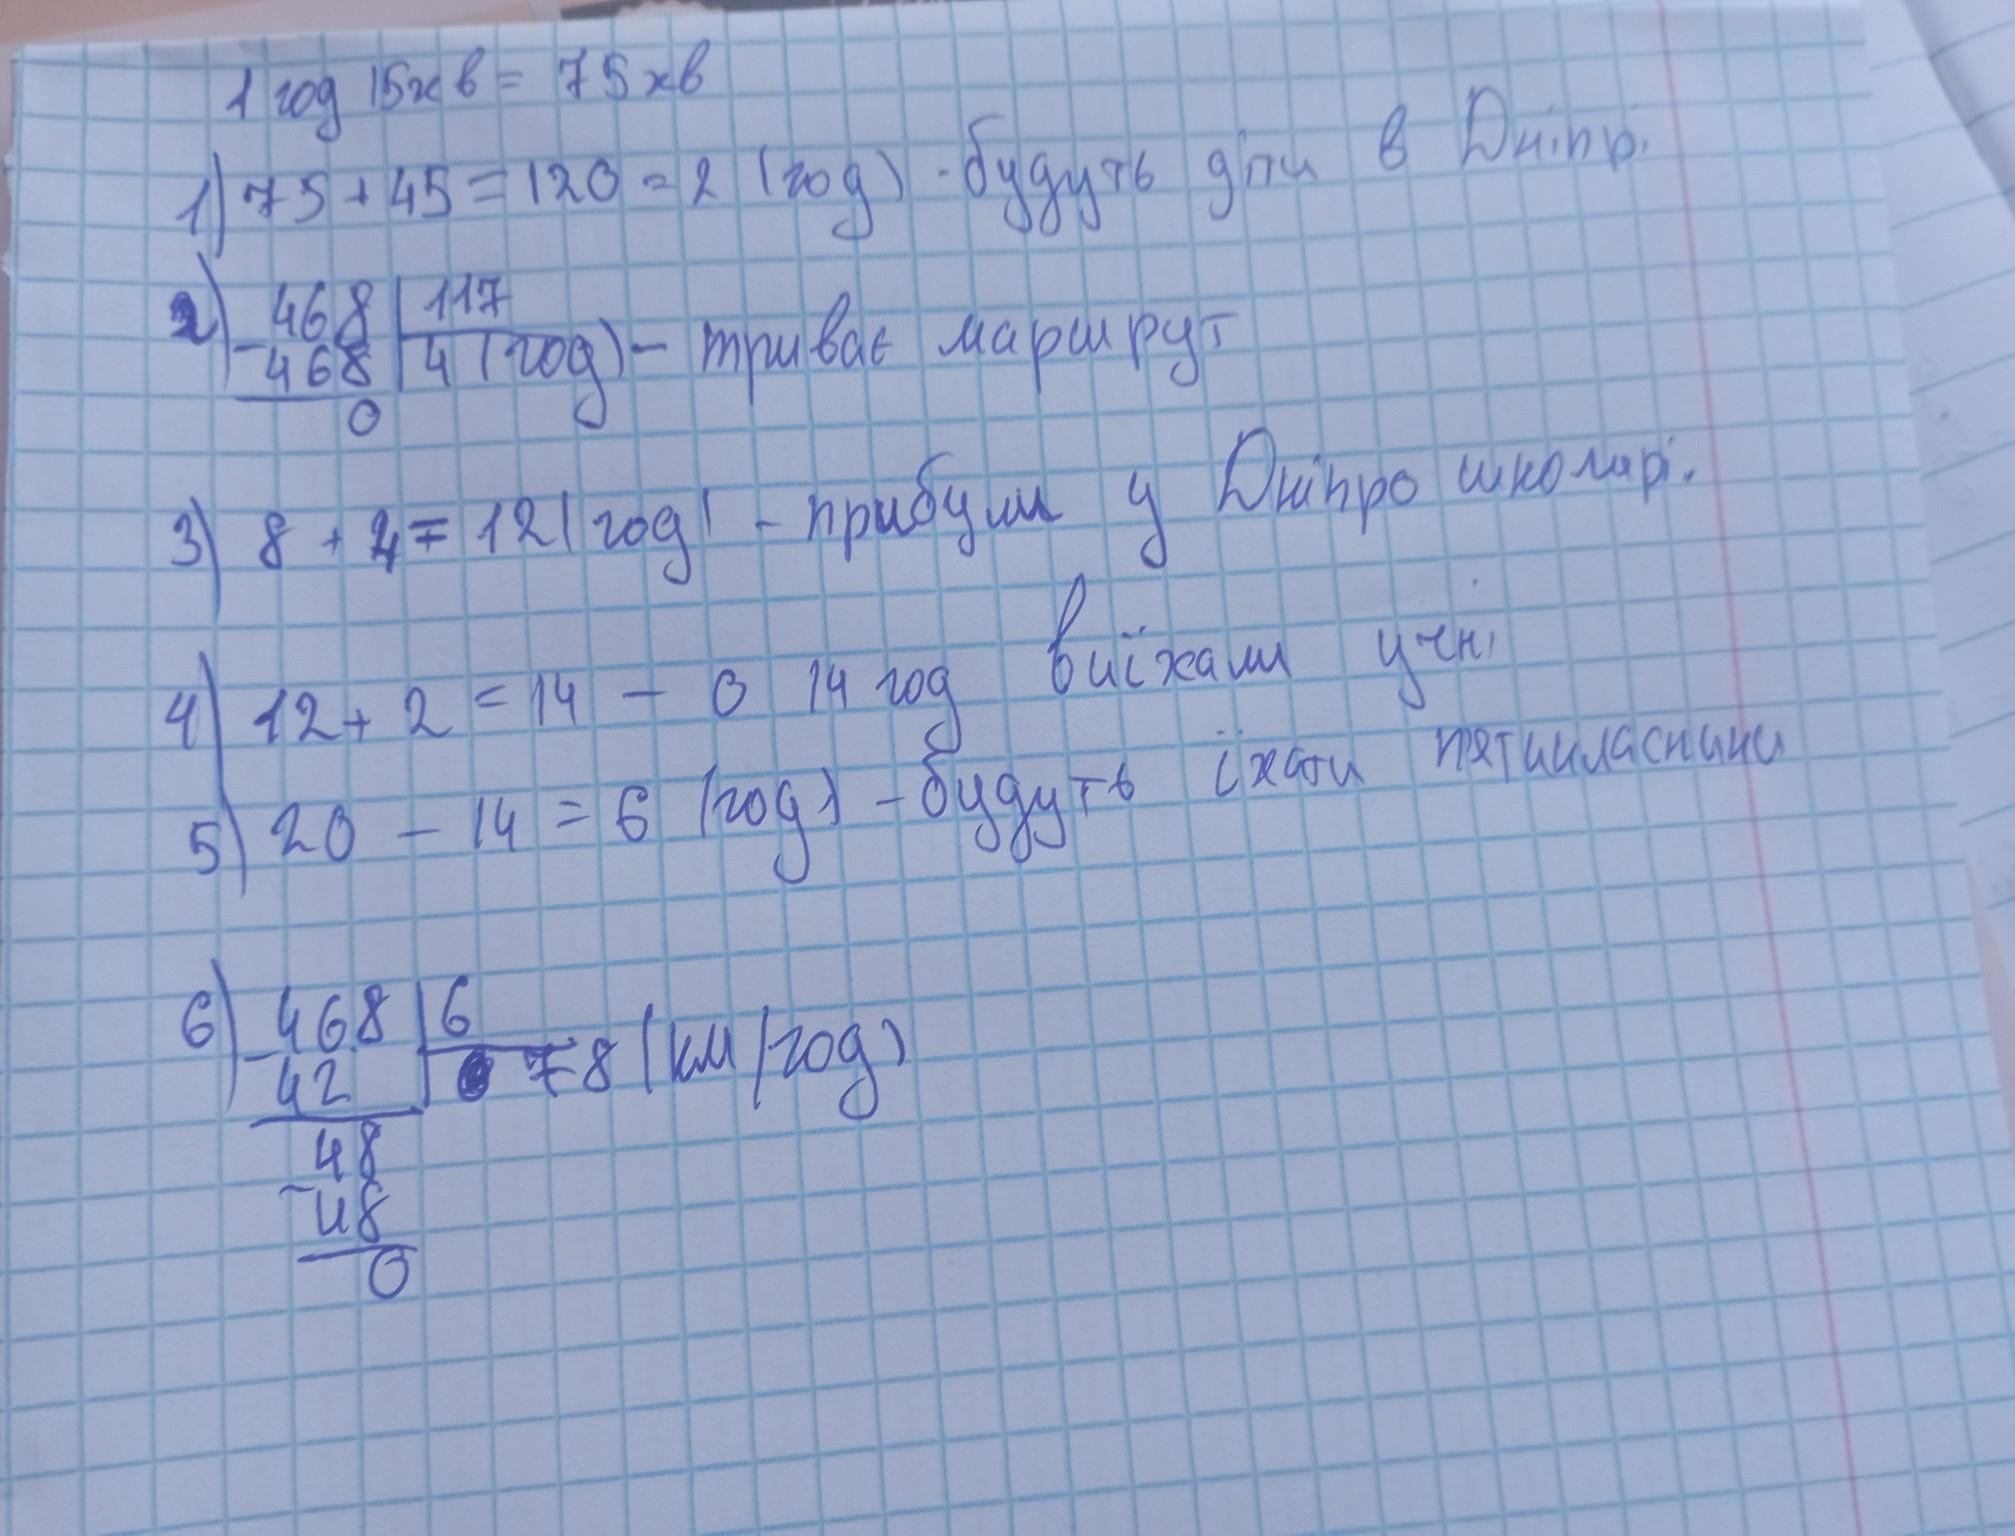 1 год 15хв = 75хв
1) 75 + 45 = 120 = 2 (год) - будуть діти в Дніпрі
2) 468 | 117
- 468 | 4 (год) - триває маршрут
0
3) 8 + 4 = 12 (год) - прибули у Дніпро школярі.
4) 12 + 2 = 14 - о 14 год виїхали учні
5) 20 - 14 = 6 (год) - будуть їхати п'ятикласники
6) 468 | 6
- 42 | 78 (км/год)
48
- 48
0